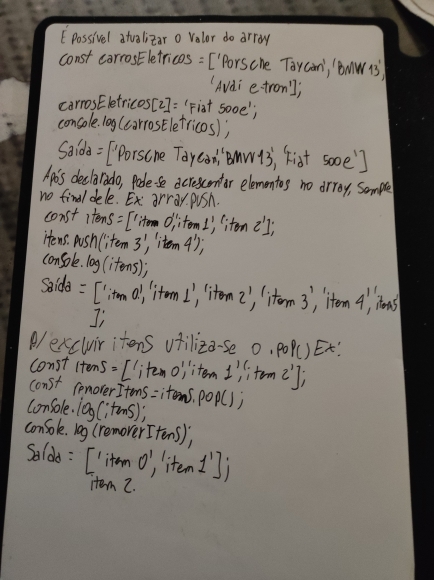 É Possível atualizar o valor do array
const carrosEletricos = ['Porsche Taycan', 'BMW I3',
'Audi e-tron'];
carrosEletricos[2]= 'Fiat 500e';
console.log(carrosEletricos);
Saída = ['Porsche Taycan', 'BMW I3', 'Fiat 500e']
Após declarado, pode-se acrescentar elementos no array, Sempre
no final dele. Ex: array.push.
const itens = ['item 0', 'item 1', 'item 2'];
itens.push('item 3', 'item 4');
console.log(itens);
Saída = ['item 0', 'item 1', 'item 2', 'item 3', 'item 4', 'item5'
];
P/ excluir itens utiliza-se o .pop() Ex:
Const itens = ['item 0', 'item 1', 'item 2'];
const removerItens = itens.pop();
Console.log(itens);
Console.log(removerItens);
Saída = ['item 0', 'item 1'];
item 2.